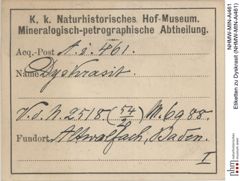 K. k. Naturhistorisches Hof-Museum.
Mineralogisch-petrographische Abtheilung.
Acq.-Post A. i. 461.
Name Dyskrasit
V. d. N. 2518 (54/4) M. 6988.
Fundort Altwolfach, Baden.
I
NHMW-MIN-AI461
Etiketten zu Dyskrasit (NHMW-MIN-AI461)
nhm